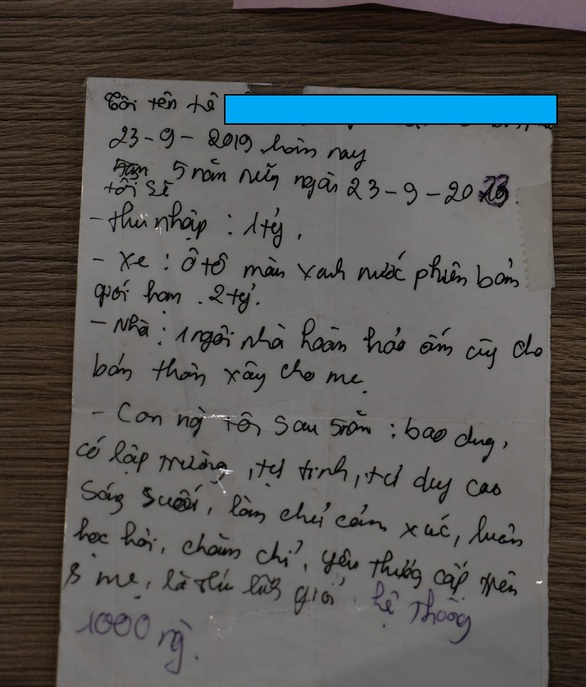 Tôi tên là
23-9-2019 hôm nay
5 năm nữa ngày 23-9-20
tôi sẽ
- thu nhập : 1 tỷ.
- Xe : Ô tô màu xanh nước phiên bản
giới hạn . 2 tỷ.
- Nhà : 1 ngôi nhà hoàn hảo ấm cúng cho
bản thân xây cho mẹ.
- Con ng tôi sau 5 năm : bao dung,
có lập trường, tự tin, tư duy cao
Sáng suốt, làm chủ cảm xúc, luôn
học hỏi, chăm chỉ, yêu thương cấp trên
mẹ, là thủ lĩnh giỏi. hệ thống
1000 ng.